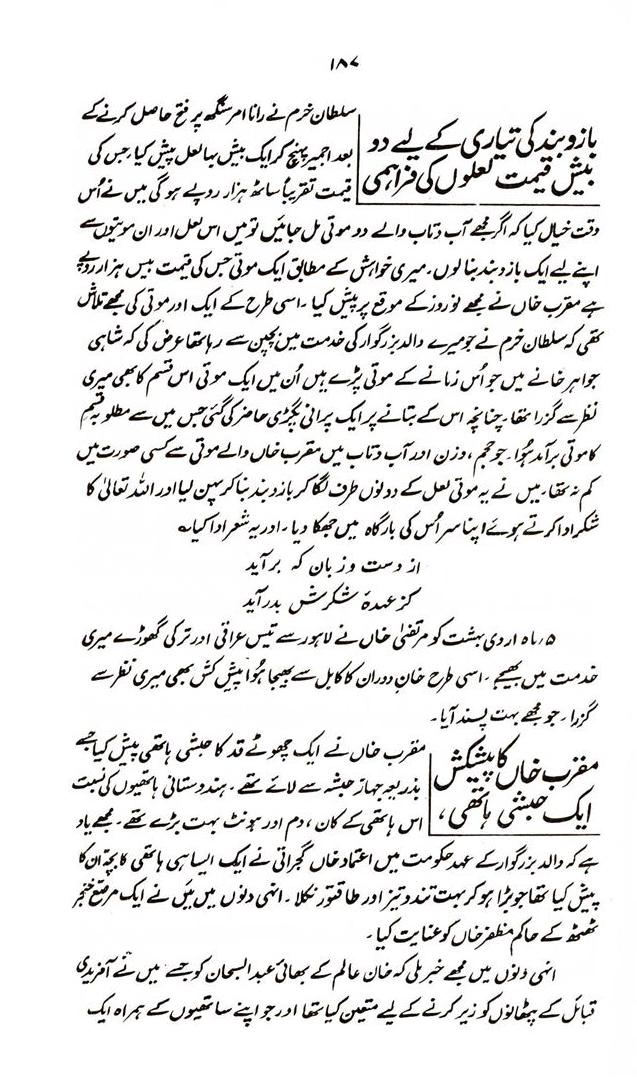 ۱۸۷
بازوبند کی تیاری کے لیے دو
بیش قیمت لعلوں کی فراہمی
سلطان خرم نے رانا امر سنگھ پر فتح حاصل کرنے کے
بعد اجمیر پہنچ کر ایک بیش بہا لعل پیش کیا جس کی
قیمت تقریباً ساٹھ ہزار روپے ہو گی میں نے اُس
وقت خیال کیا کہ اگر مجھے آب و تاب والے دو موتی مل جائیں تو میں اس لعل اور ان موتیوں سے
اپنے لیے ایک بازو بند بنا لوں۔ میری خواہش کے مطابق ایک موتی جس کی قیمت بیس ہزار روپے
ہے مقرب خاں نے مجھے نوروز کے موقع پر پیش کیا۔ اسی طرح کے ایک اور موتی کی مجھے تلاش
تھی کہ سلطان خرم نے جو میرے والد بزرگوار کی خدمت میں بچپن سے رہا تھا عرض کی کہ شاہی
جواہر خانے میں جو اُس زمانے کے موتی پڑے ہیں اُن میں ایک موتی اس قسم کا بھی میری
نظر سے گزرا تھا۔ چنانچہ اس کے بتانے پر ایک پرانی پگڑی حاضر کی گئی جس میں سے مطلوبہ قسم
کا موتی برآمد ہوُا۔ جو حجم، وزن اور آب و تاب میں مقرب خاں والے موتی سے کسی صورت میں
کم نہ تھا۔ میں نے یہ موتی لعل کے دونوں طرف لگا کر بازو بند بنا کر پہن لیا اور اللہ تعالیٰ کا
شکر ادا کرتے ہوئے اپنا سر اُس کی بارگاہ میں جھکا دیا۔ اور یہ شعر ادا کیا؎
از دست و زبان کہ برآید
کز عہدۂ شکرش بدر آید
۵ر ماہ اردی بہشت کو مرتضیٰ خاں نے لاہور سے تیس عراقی اور ترکی گھوڑے میری
خدمت میں بھیجے۔ اسی طرح خانِ دوران کا کابل سے بھیجا ہوُا پیش کش بھی میری نظر سے
گزرا۔ جو مجھے بہت پسند آیا۔
مقرب خاں کا پیشکش
ایک حبشی ہاتھی،
مقرب خاں نے ایک چھوٹے قد کا حبشی ہاتھی پیش کیا جسے
بذریعہ جہاز حبشہ سے لائے تھے۔ ہندوستانی ہاتھیوں کی نسبت
اس ہاتھی کے کان، دم اور ہونٹ بہت بڑے تھے۔ مجھے یاد
ہے کہ والد بزرگوار کے عہد حکومت میں اعتماد خاں گجراتی نے ایک ایسا ہی ہاتھی کا بچہ ان کا
پیش کیا تھا جو بڑا ہو کر بہت تند و تیز اور طاقتور نکلا۔ انہی دنوں میں میَں نے ایک مرصع خنجر
ٹھٹھ کے حاکم مظفر خاں کو عنایت کیا۔
انہی دنوں میں مجھے خبر ملی کہ خان عالم کے بھائی عبد السبحان کو جسے میں نے آفریدی
قبائل کے پٹھانوں کو زیر کرنے کے لیے متعین کیا تھا اور جو اپنے ساتھیوں کے ہمراہ ایک